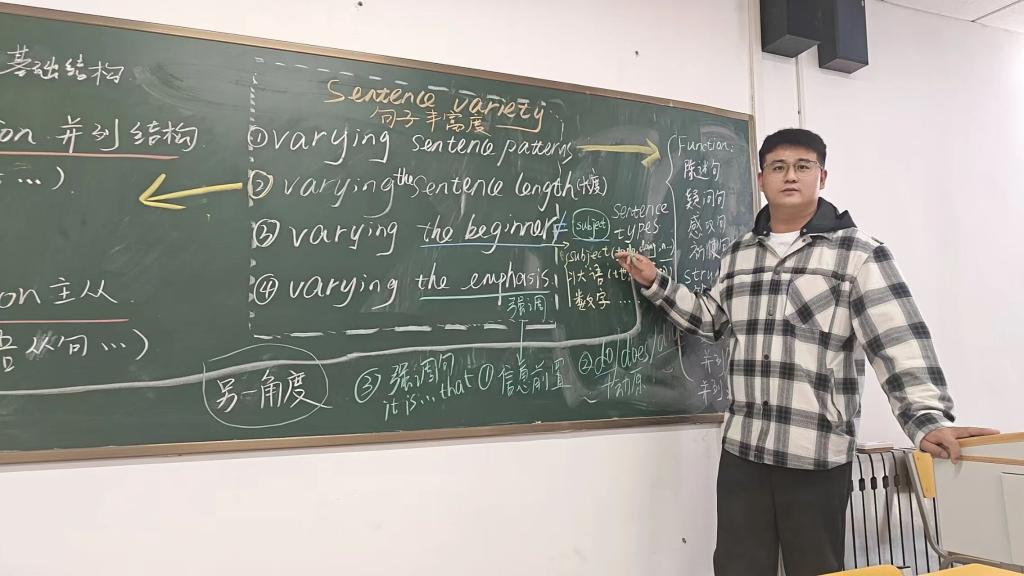 基础结构
ion 并列结构
...)
ion 主从
语从句 ...)
Sentence variety
句子丰富度
① varying sentence patterns
② varying the sentence length (长度)
③ varying the beginner
④ varying the emphasis
强调
= subject
sentence types
subject
状语
数字 ...
Function:
陈述句
疑问句
感叹句
祈使
另一角度
③ 强调句
it is... that
① 信息前置
② do does
+ 动原
并列
并列